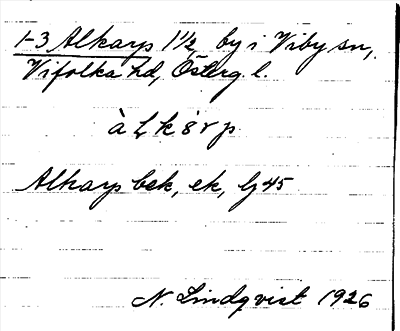 1-3 Alkarp 1 1/2 by i Viby sn,
Vifolka hd, Österg. l.
àLkörp
Alkarp bek, ek, Gj 45
N. Lindqvist 1926